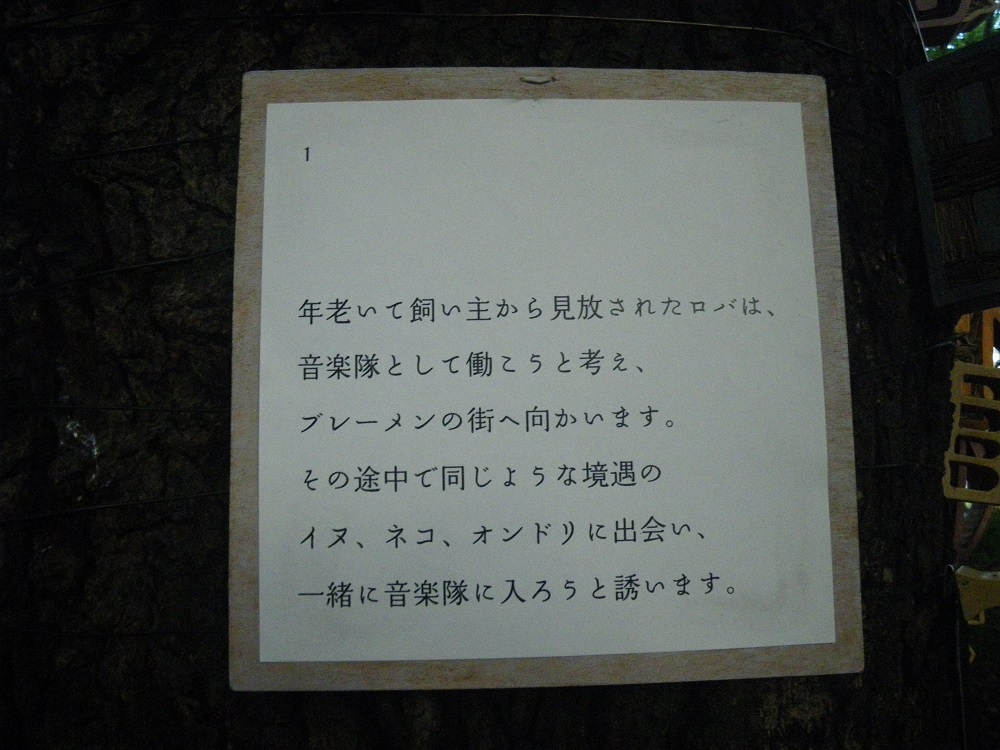 1
年老いて飼い主から見放されたロバは、
音楽隊として働こうと考え、
ブレーメンの街へ向かいます。
その途中で同じような境遇の
イヌ、ネコ、オンドリに出会い、
一緒に音楽隊に入ろうと誘います。